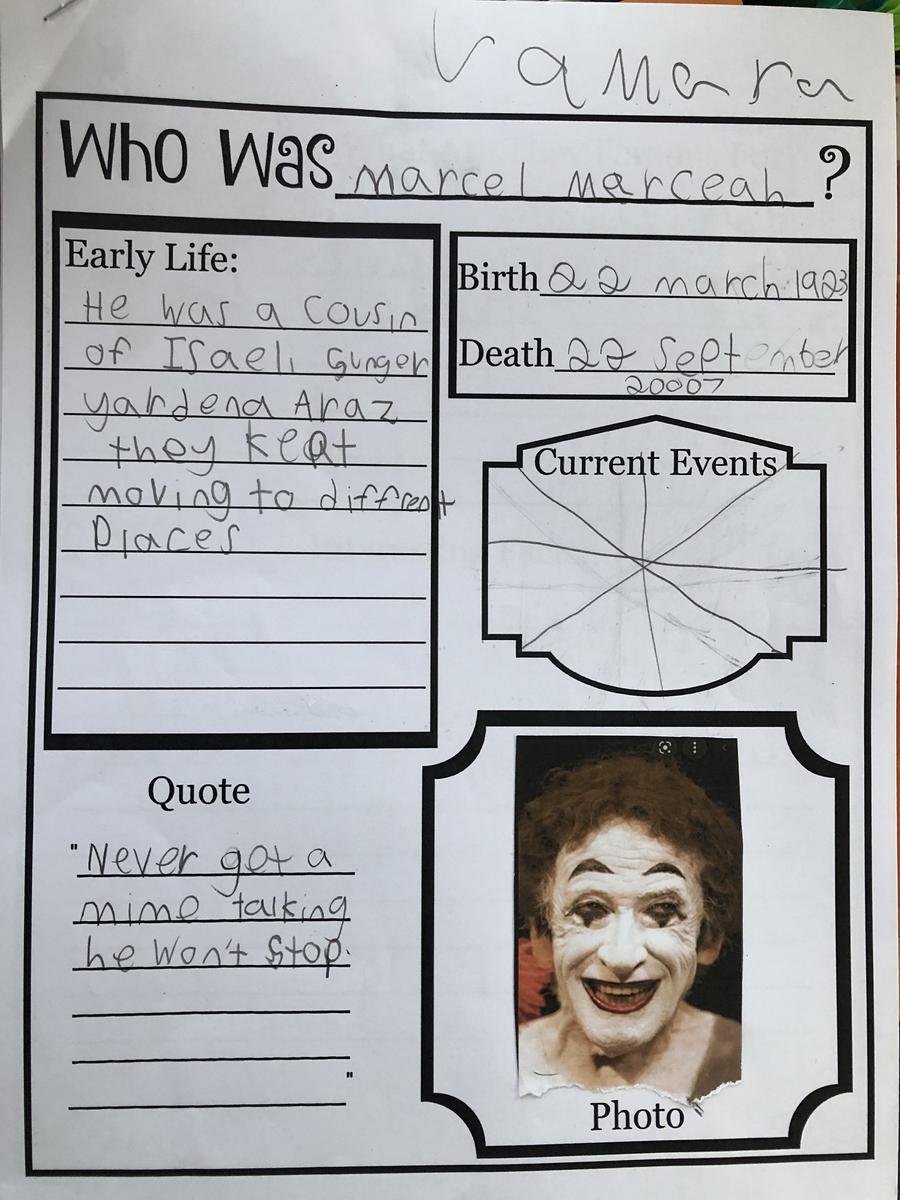 Vamara
Who Was marcel marceah ?
Early Life:
He was a cousin
of Isaeli Gunger
yardena Araz
they kept
moving to diffrent
Places
Birth 22 march 1923
Death 22 September
20007
Current Events
Quote
"Never get a
mime talking
he won't stop.
"
Photo